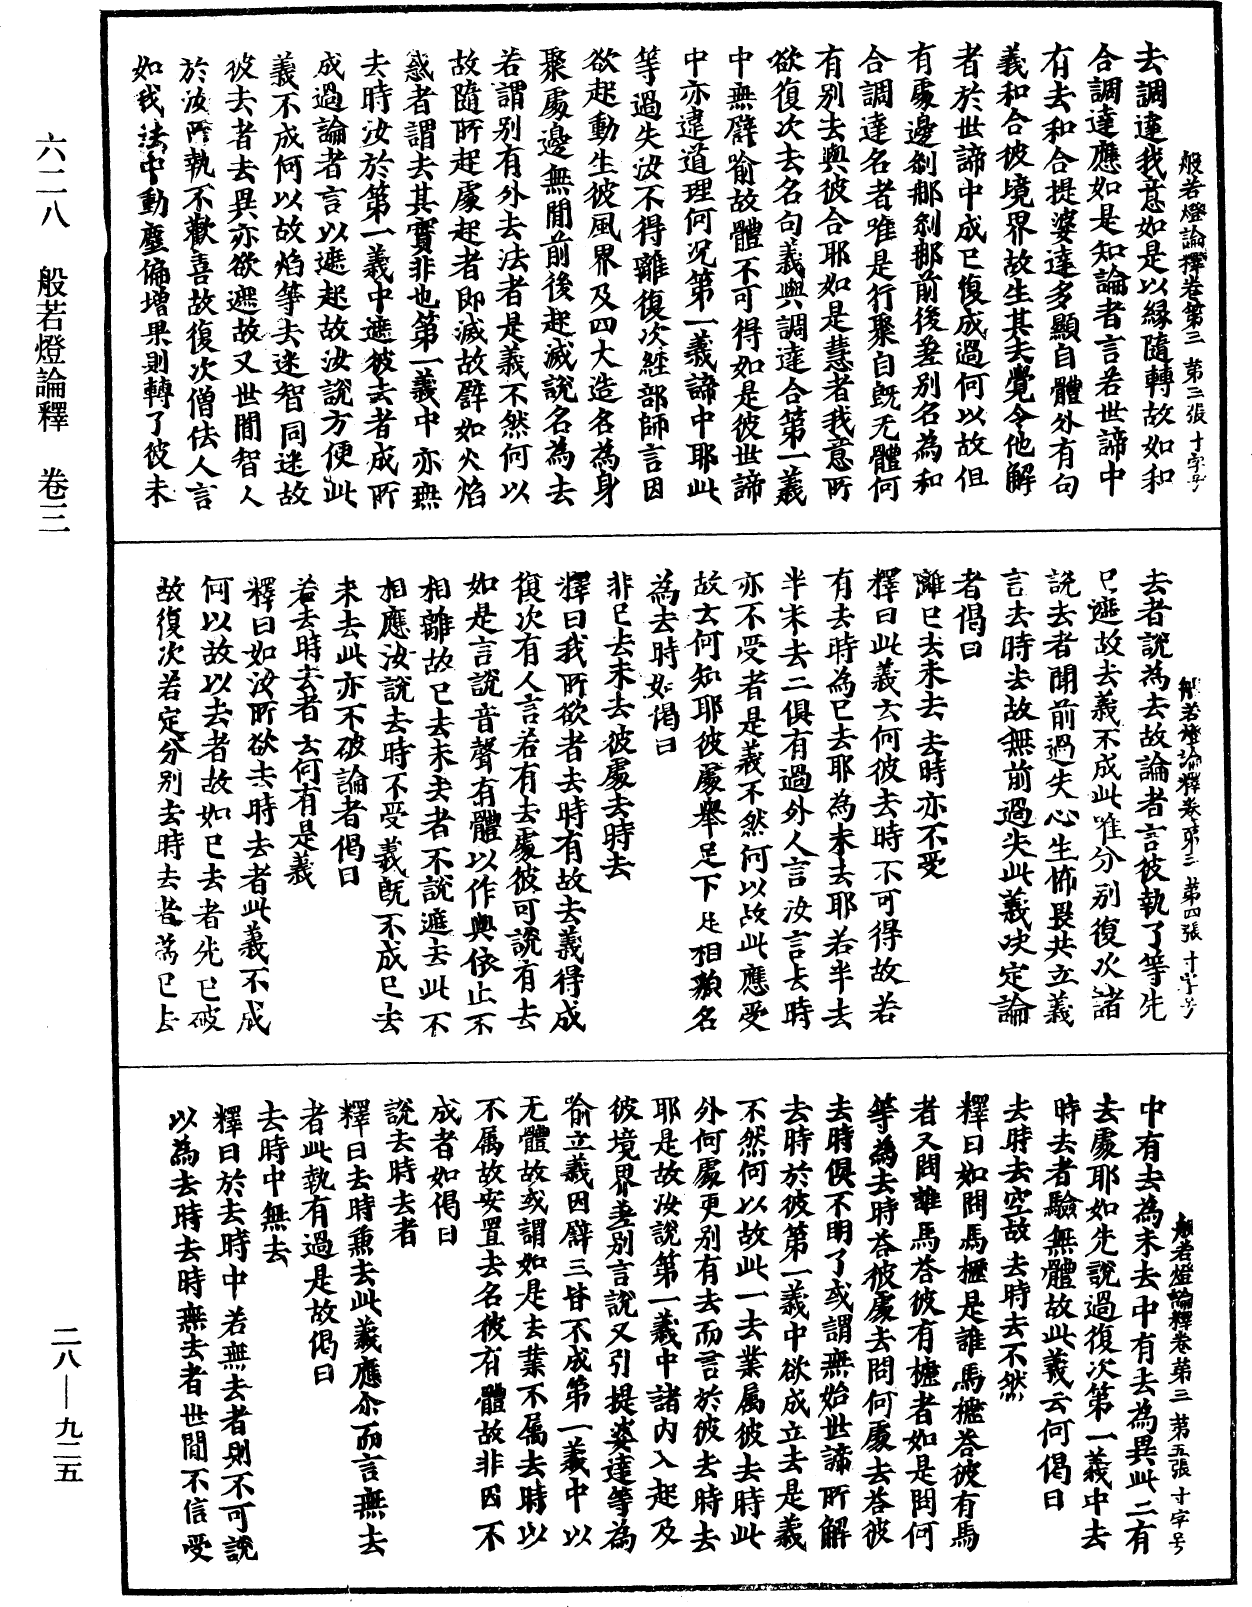 般若燈論釋卷第三 第三張 寸字号
去調達我意如是以緣隨轉故如和
合調達應如是知論者言若世諦中
有去和合提婆達多顯自體外有句
義和合彼境界故生其去覺令他解
者於世諦中成已復成過何以故但
有處邊剎那剎那前後差別名為和
合調達名者唯是行聚自既无體何
有別去與彼合耶如是慧者我意所
欲復次去名句義與調達合第一義
中無譬喻故體不可得如是彼世諦
中亦違道理何況第一義諦中耶此
等過失汝不得離復次經部師言因
欲起動生彼風界及四大造名為身
聚處邊無間前後起滅說名為去
若謂別有外去法者是義不然何以
故隨所起處起者即滅故譬如火焰
惑者謂去其實非也第一義中亦無
去時汝於第一義中遮彼去者成所
成過論者言以遮起故汝說方便此
義不成何以故焰等去迷智同迷故
彼去者去異亦欲遮故又世間智人
於汝所執不歡喜故復次僧佉人言
如我法中動塵偏增果則轉了彼未
般若燈論釋卷第三 第四張 寸字号
去者說為去故論者言彼執了等先
已遮故去義不成此唯分別復次諸
說去者聞前過失心生怖畏共立義
言去時去故無前過失此義決定論
者偈曰
離已去未去 去時亦不受
釋曰此義云何彼去時不可得故若
有去時為已去耶為未去耶若半去
半未去二俱有過外人言汝言去時
亦不受者是義不然何以故此應受
故云何知耶彼處舉足下足相貌名
為去時如偈曰
非已去未去 彼處去時去
釋曰我所欲者去時有故去義得成
復次有人言若有去處彼可說有去
如是言說音聲有體以作與依止不
相離故已去未去者不說遮去此不
相應汝說去時不受義既不成已去
未去此亦不破論者偈曰
若去時去者 云何有是義
釋曰如汝所欲去時去者此義不成
何以故以去者故如已去者先已破
故復次若定分別去時去者為已去
般若燈論釋卷第三 第五張 寸字号
中有去為未去中有去為異此二有
去處耶如先說過復次第一義中去
時去者驗無體故此義云何偈曰
去時去空故 去時去不然
釋曰如問馬櫪是誰馬櫪荅彼有馬
者又問誰馬荅彼有櫪者如是問何
等為去時荅彼處去問何處去荅彼
去時俱不明了或謂無始世諦所解
去時於彼第一義中欲成立去是義
不然何以故此一去業属彼去時此
外何處更別有去而言於彼去時去
耶是故汝說第一義中諸內入起及
彼境界差別言說又引提婆達等為
喻立義因譬三皆不成第一義中以
无體故或謂如是去業不属去時以
不属故安置去名彼有體故非因不
成者如偈曰
說去時去者
釋曰去時兼去此義應尒而言無去
者此執有過是故偈曰
去時中無去
釋曰於去時中若無去者則不可說
以為去時去時無去者世間不信受
六二八 般若燈論釋 卷三
二八—九二五